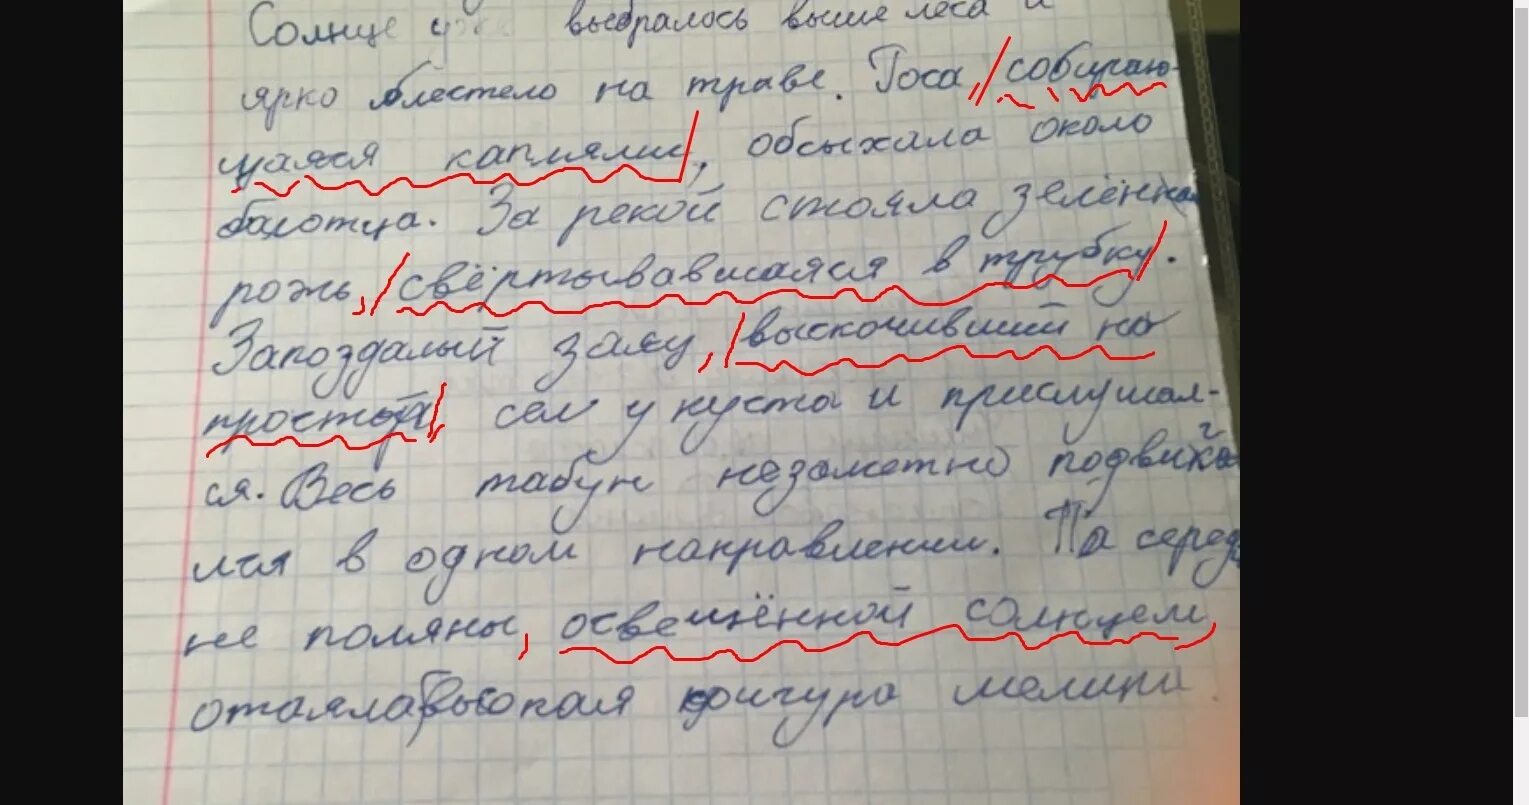 Солнце уже выбралось выше леса и
ярко блестело на траве. Роса, собираю-
щаяся каплями, обсыхала около
балотца. За рекой стояла зелённая
рожь, свёртывавшаяся в трубку.
Запоздалый заяц, выскочивший на
простор, сел у куста и прислушал-
ся. Весь табун незаметно подвига
лся в одном направлении. Па середи
не поляны, освещённой солнцем,
отаяла высокая фигура